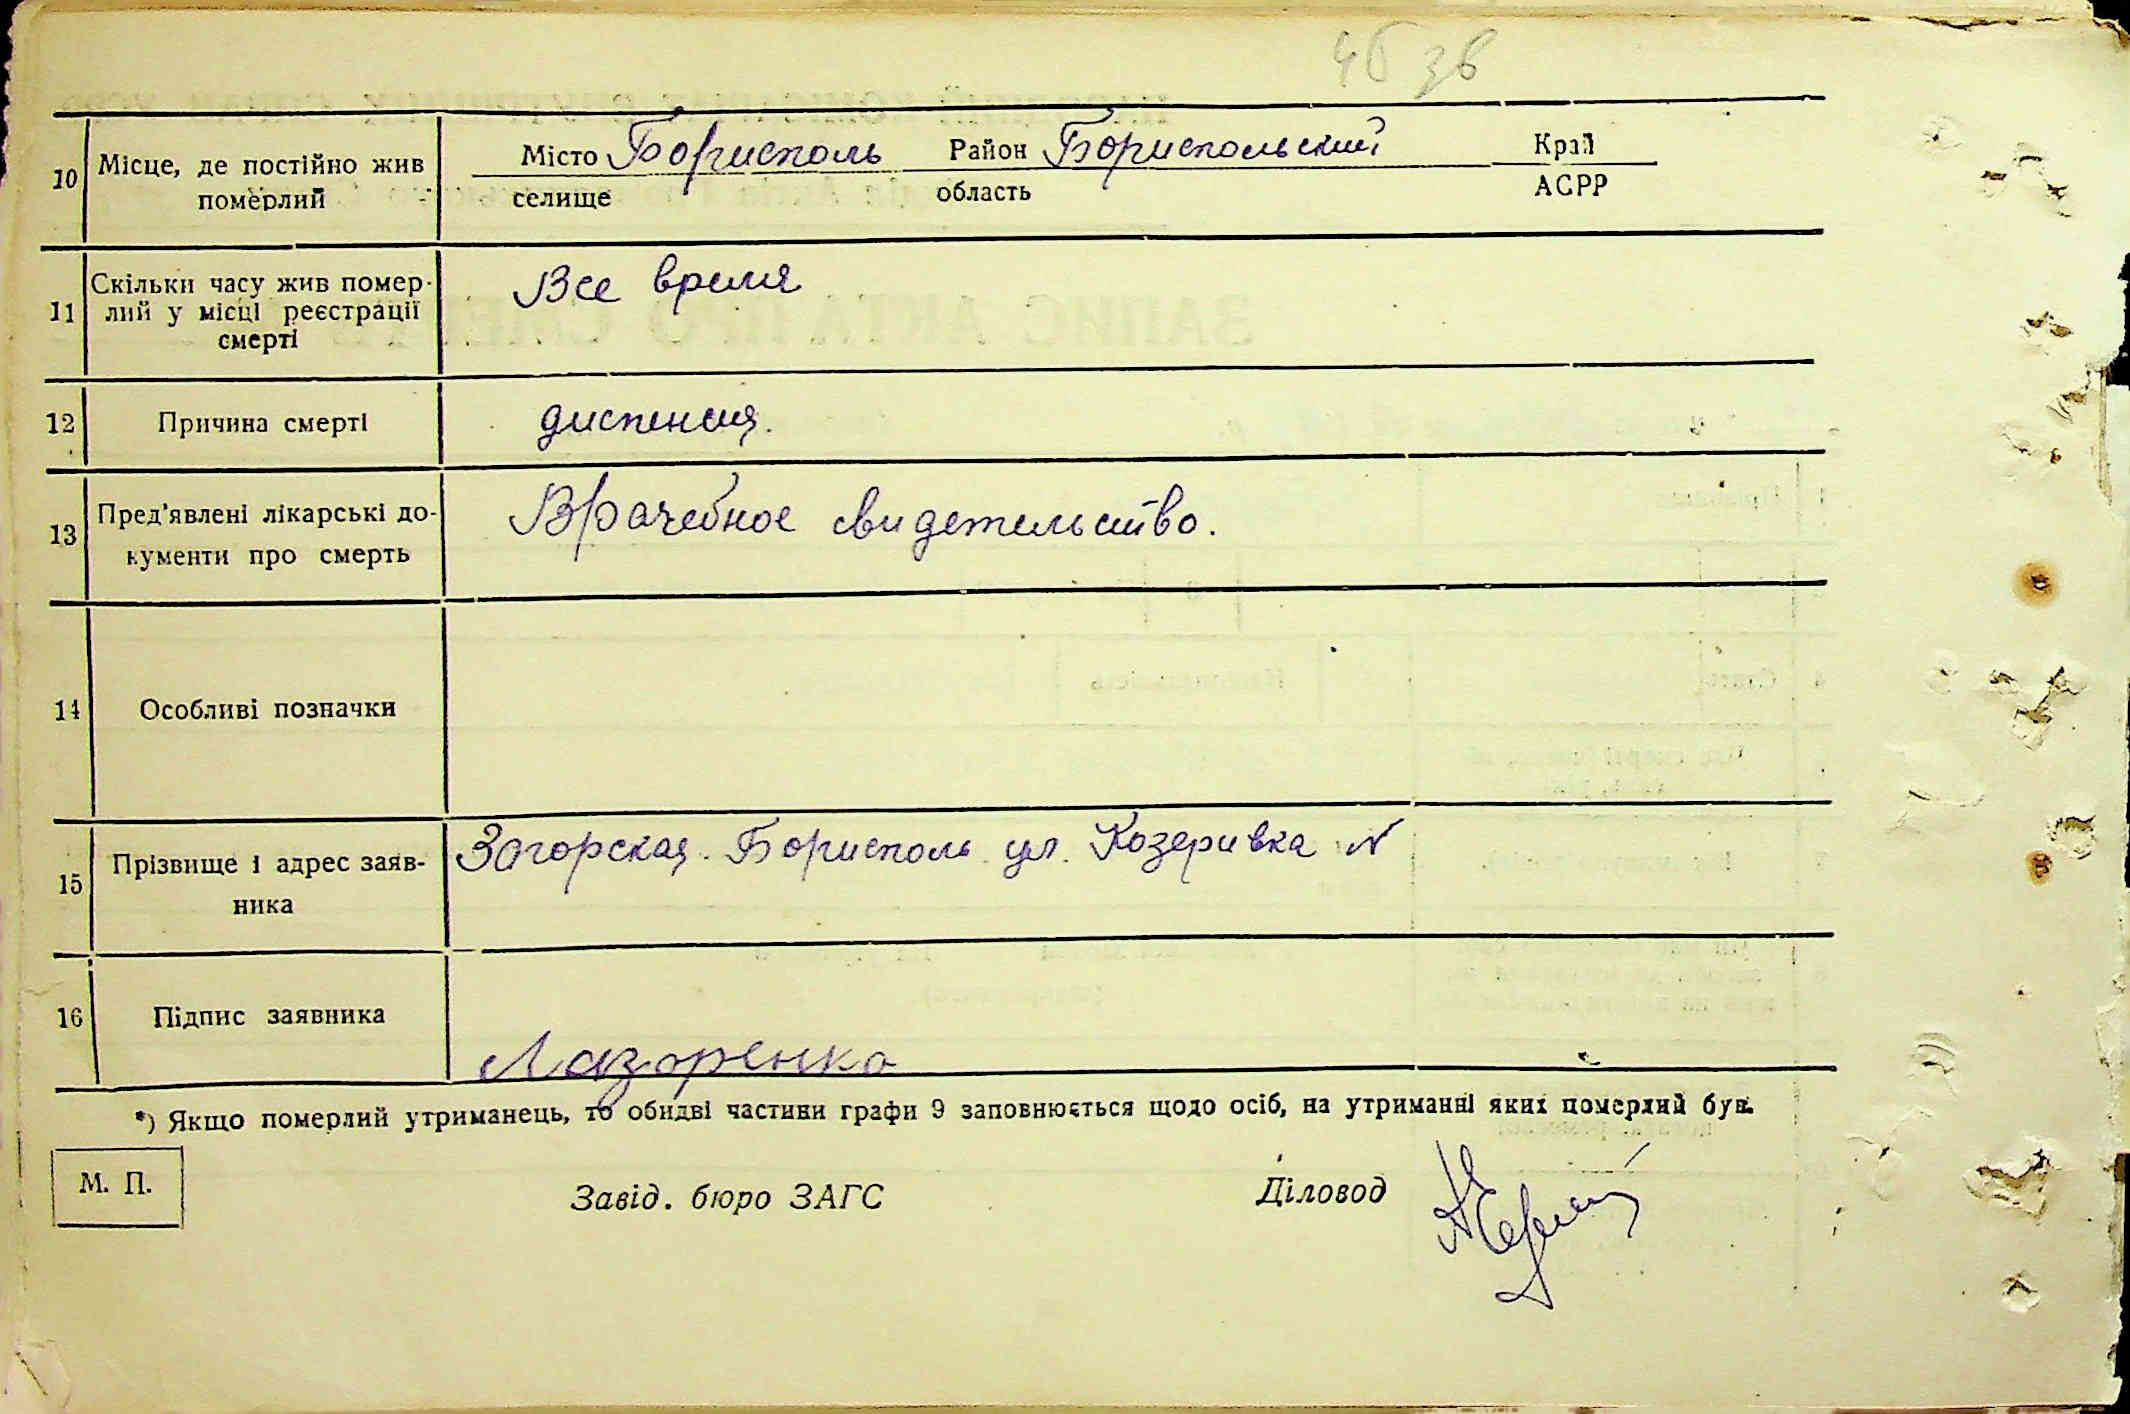 46 зв
10 Місце, де постійно жив померлий Місто селище Борисполь Район область Бориспольский Край АСРР
11 Скільки часу жив помер-
лий у місці реєстрації
смерті
Все время
12 Причина смерті диспепсия.
13 Пред'явлені лікарські до-
кументи про смерть
Врачебное свидетельство.
14 Особливі позначки
15 Прізвище і адрес заяв-
ника
Загорская. Борисполь ул. Козеривка N
16 Підпис заявника
Лазоренко
*) Якщо померлий утриманець, то обидві частини графи 9 заповнюється щодо осіб, на утриманні яких померлий був.
М. П. Завід. бюро ЗАГС Діловод